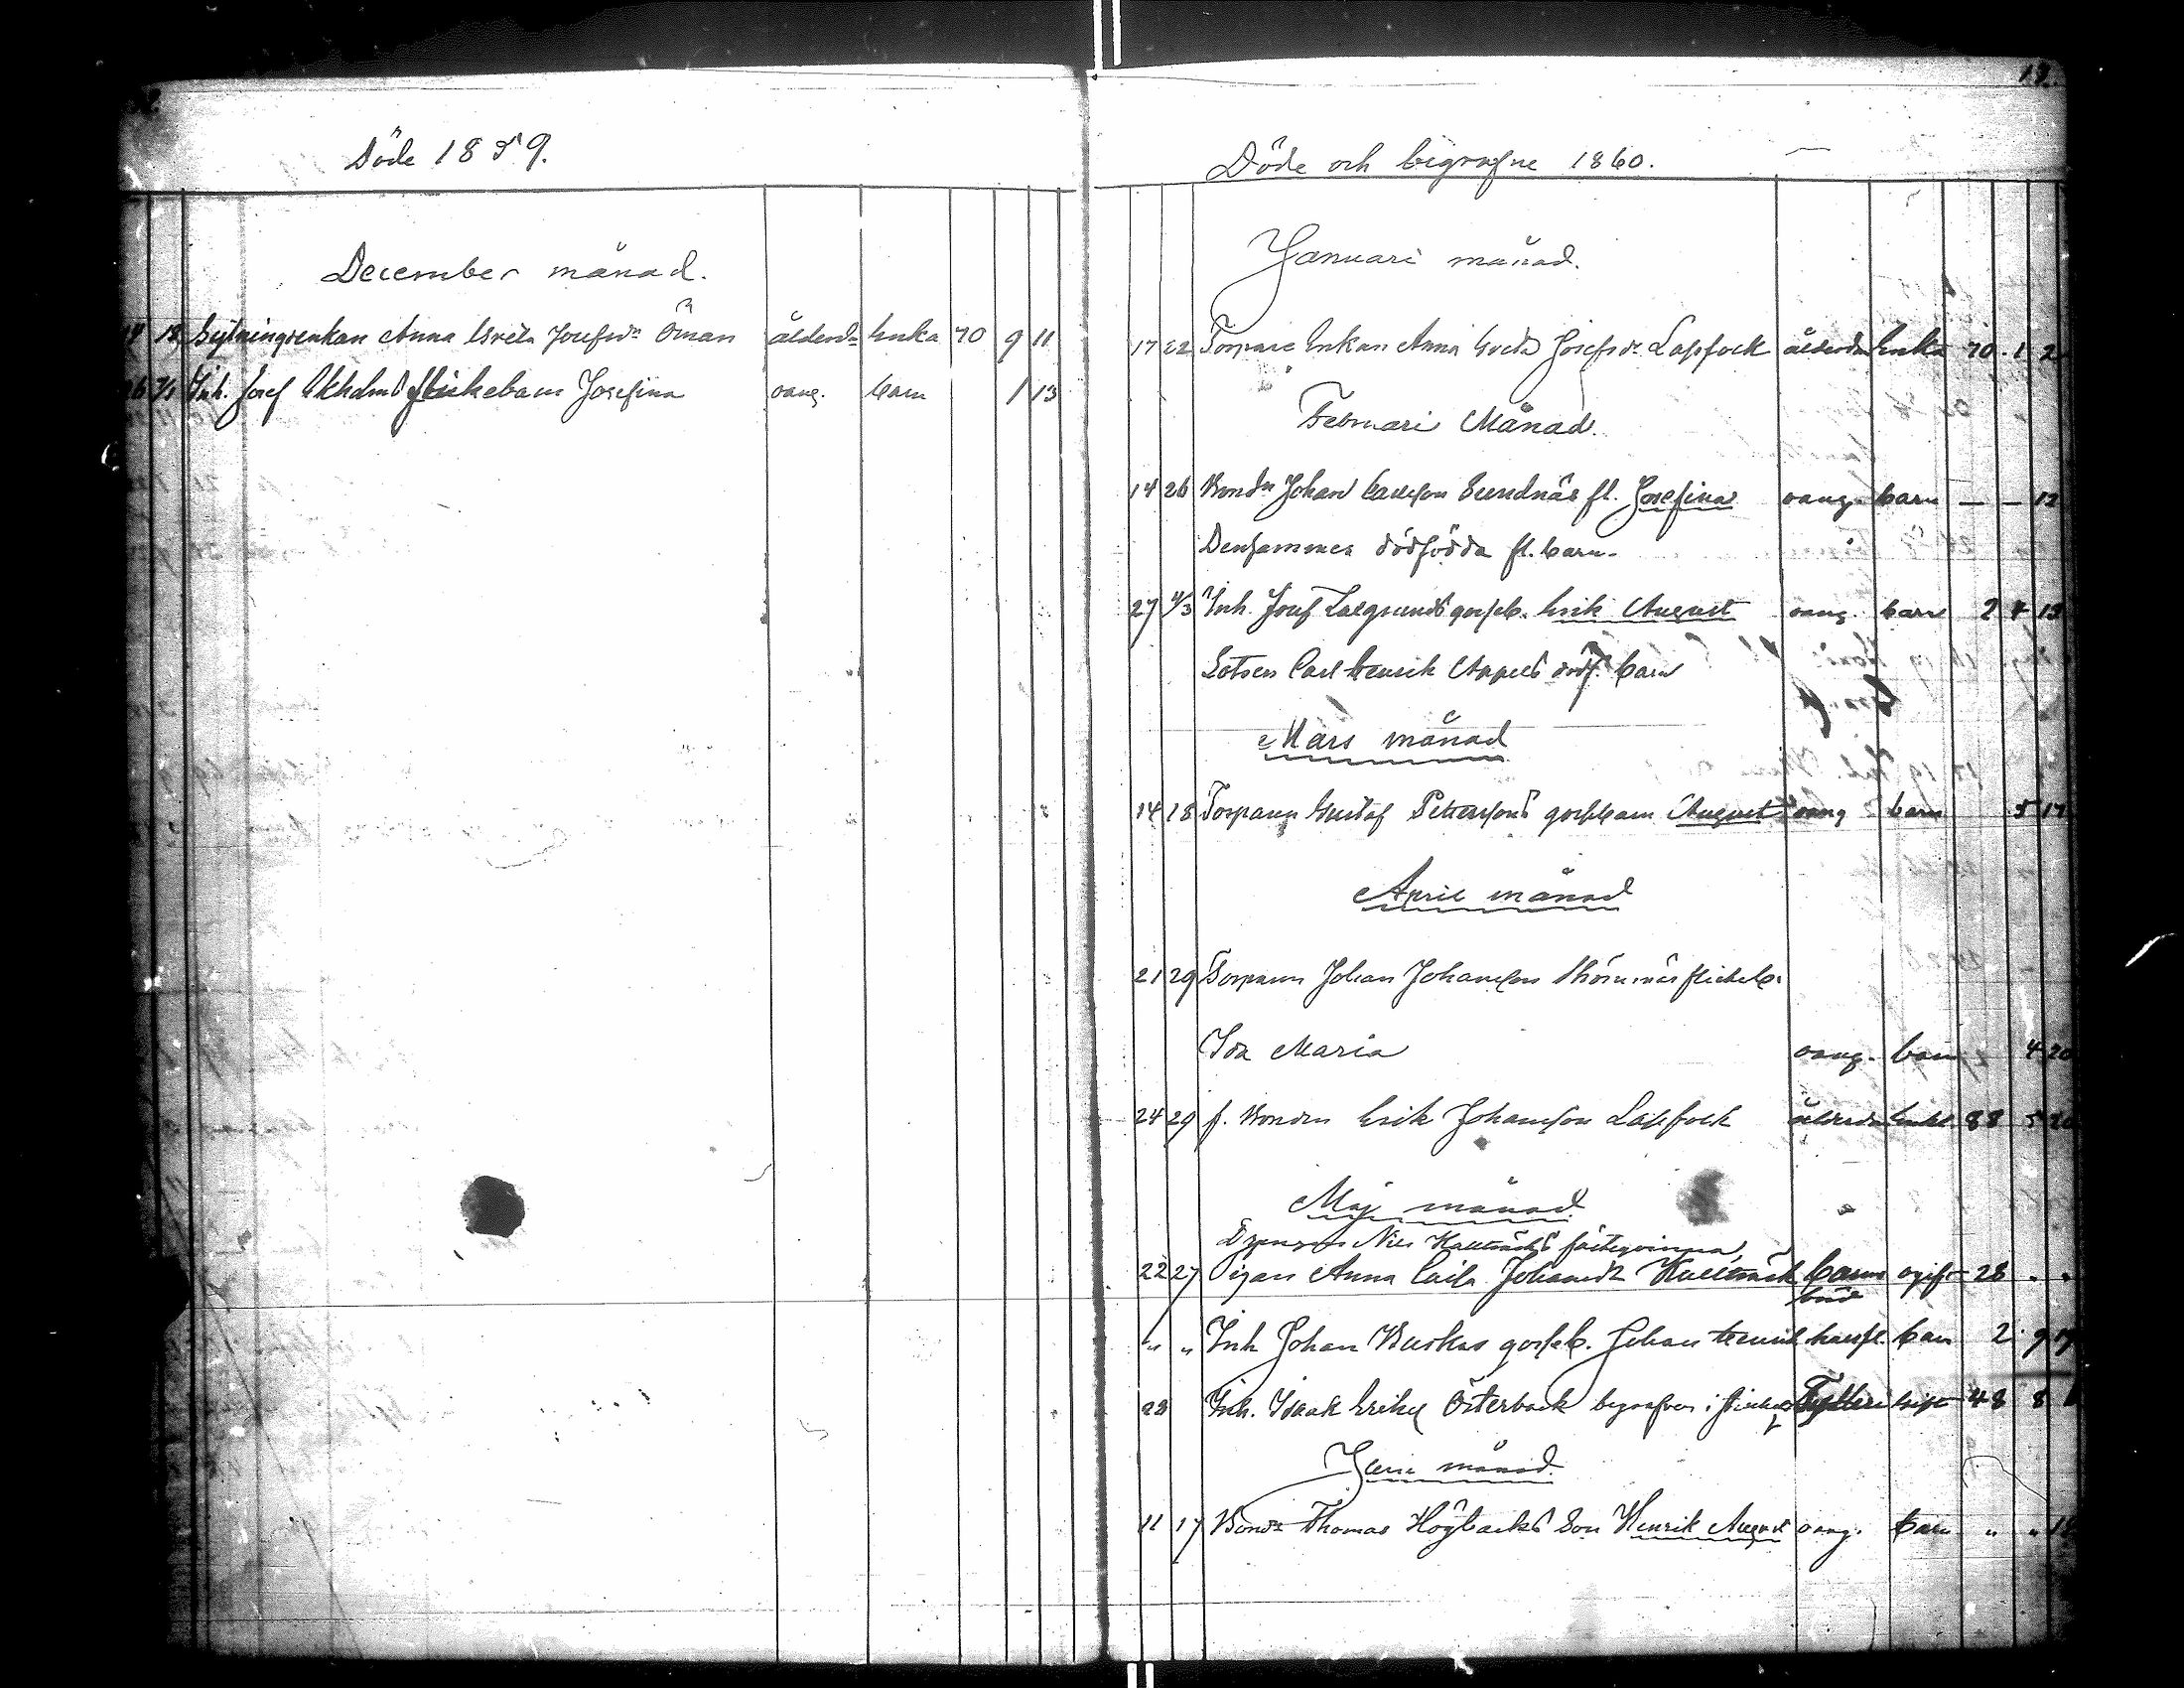 Döde 1859.
December månad.
14 18 Sytningsenkan Anna Greta Josefsdr Öman ålderd. Enka 70 9 11
26 1/1 Inh. Josef Ekholms flickebarn Josefina oang. barn 1 13
12
Döde och begrafne 1860.
Januari månad.
17 22 Torpare Enkan Anna Greta Josefsdr Lapfock ålderdom Enka 70 1 2
Februari Månad.
14 26 Bondn Johan Carlson Sundnäs fl. Josefina oang. barn — — 12
Densammes dödfödda fl. barn.
27 4/3 Inh. Josef Lalgrunds gosseb. Erik August oang. barn 2 4 13
Lotsen Carl Henrik Appels dödf. barn
Mars månad
14 18 Torparen Gustaf Pettersons gossbarn August oang barn 5 17
April månad
21 29 Torparen Johan Johanson flickeb.
Ida Maria oang. barn 4 20
24 29 f. Bonden Erik Johanson Lapfock ålderdom Enkl. 88 5 20
Maj månad.
Drängen Nils fästeqvinna,
22 27 Pigan Anna Caisa Johansdr barns ogift 28 " "
börd
" " Inh Johan Buskas gosseb. Johan Henrik barn 2 9
23 Inh. Isaak Eriks Österback begrafven i gift 48 8
Juni månad.
11 17 Bondn Thomas Högbacks Son Henrik August oang. barn " "